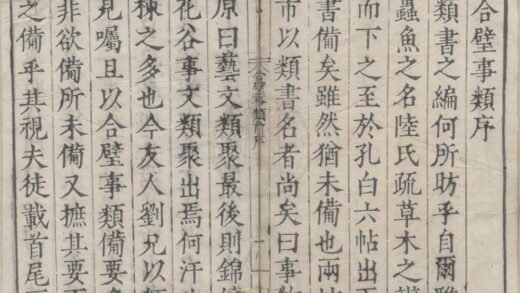 合璧事類序
類書之編何所昉乎自爾雅
蟲魚之名陸氏疏草木之
而下之至於孔白六帖出
書備矣雖然猶未備也兩
市以類書名者尚矣曰事
合璧事類前序
原曰藝文類聚最後則錦
花谷事文類聚出焉何汗
棟之多也今友人劉兄以
見囑且以合璧事類備要
非欲備所未備又摭其要
之備乎其視夫徒載首尾